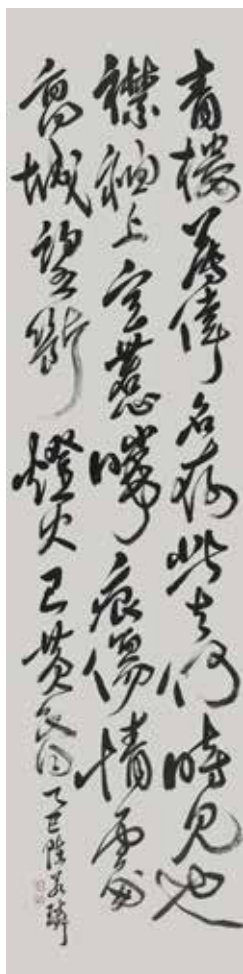 青樓薄倖名存此去何時見也
襟袖上空惹啼痕傷情處
高城望斷燈火已黃昏乙巳